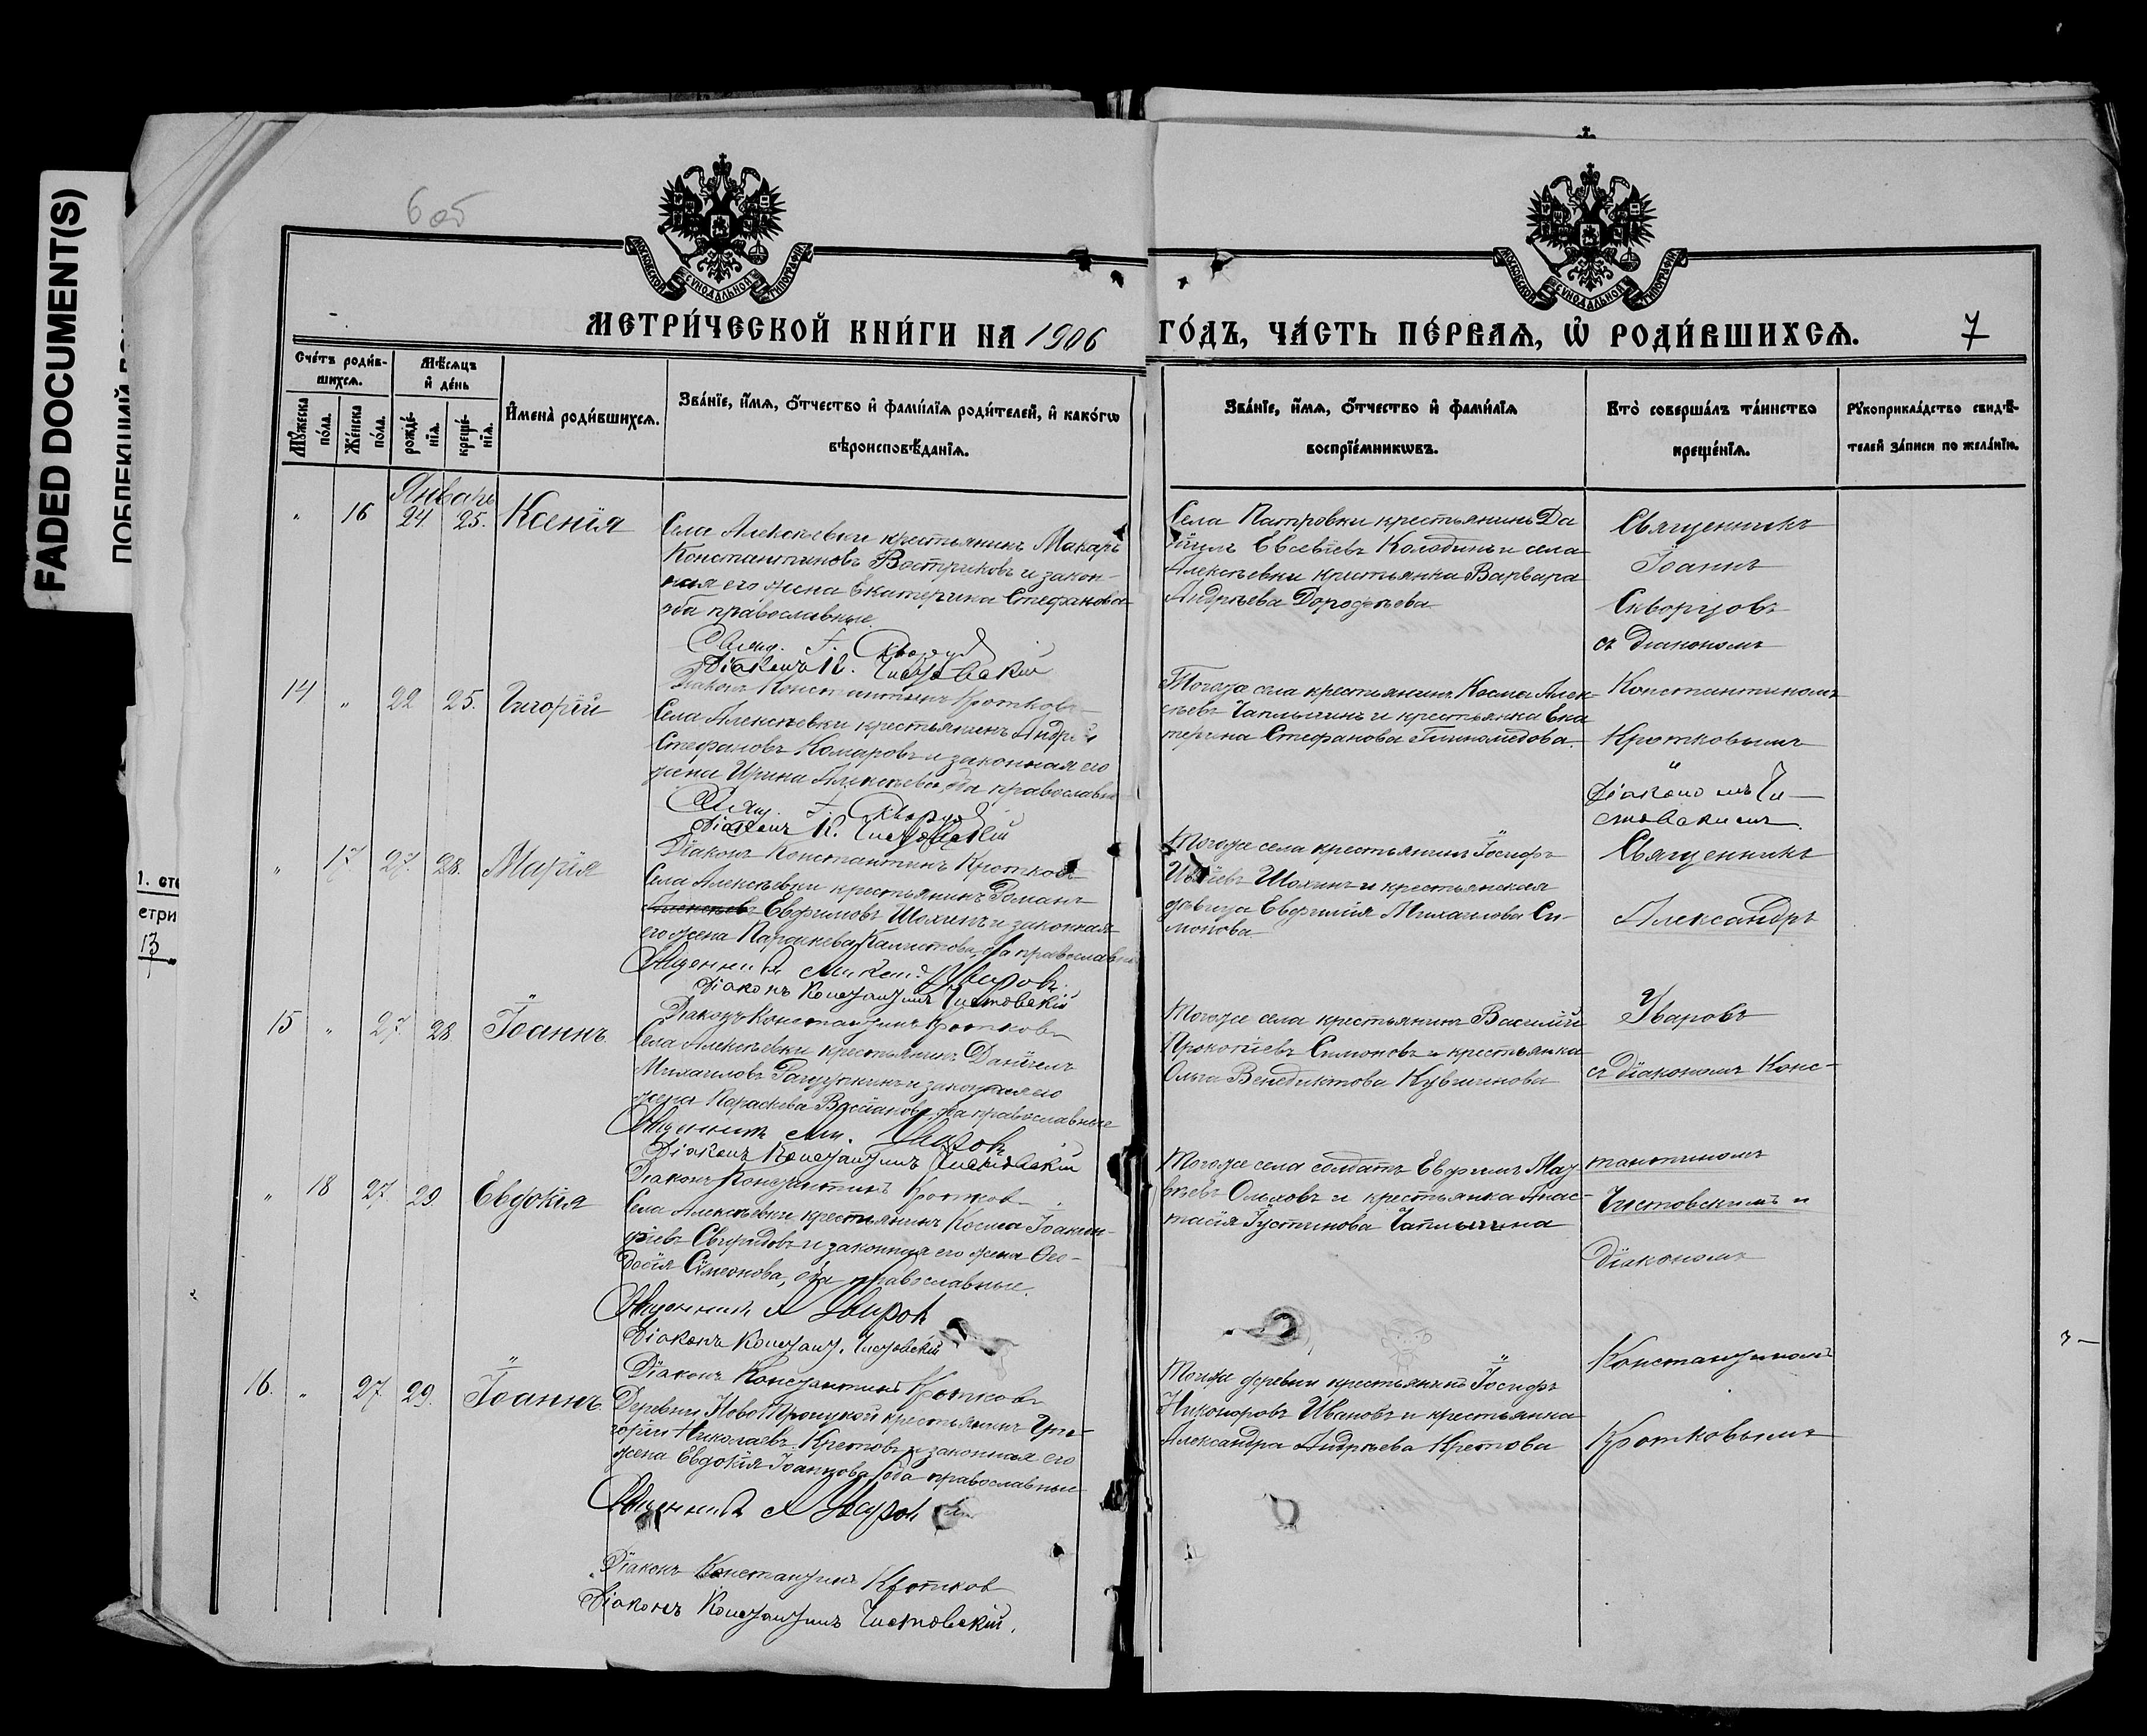 FADED DOCUMENT(S)
6 об
МОСКОВСКОЙ СѴНОДАЛЬНОЙ ТИПОГРАФІИ
МОСКОВСКОЙ СѴНОДАЛЬНОЙ ТИПОГРАФІИ
МЕТРИ́ЧЕСКОЙ КНИ́ГИ НА 1906
ГО́ДЪ, ЧА́СТЬ ПЕ́РВАѦ, Ѡ҆ РОДИ́ВШИХСѦ.
7
Сче́тъ роди́в-
шихсѧ.
Мѣ́сѧцъ
и҆ де́нь
Мꙋ́жеска
по́ла.
Же́нска
по́ла.
рожде́-
нїѧ.
креще́-
нїѧ.
И҆мена̀ роди́вшихсѧ.
Зва́нїе, и҆́мѧ, ѻ҆́тчество и҆ фами́лїѧ роди́телей, и҆ како́гѡ
вѣроисповѣ́данїѧ.
Зва́нїе, и҆́мѧ, ѻ҆́тчество и҆ фами́лїѧ
воспрїе́мникѡвъ.
Кто̀ соверша́лъ та́инство
креще́нїѧ.
Рꙋкоприкла́дство свидѣ́-
телей за́писи по жела́нїю.
Январь
" 16 24 25. Ксенія
Села Алексѣевки крестьянинъ Макаръ
Константиновъ Востриковъ и закон-
ная его жена Екатерина Стефанова
оба православные.
Свящ. І. Скворцовъ
Діаконъ К. Чистовскій
Діаконъ Константинъ Кротковъ
Села Патровки крестьянинъ Да
ніилъ Евсевіевъ Колодинъ и села
Алексѣевки крестьянка Варвара
Андреѣева Дорофѣева
Священникъ
Іоаннъ
Скворцовъ
съ діакономъ
14 " 22 25. Григорій
Села Алексѣевки крестьянинъ Андрей
Стефановъ Комаровъ и законная его
жена Ирина Алексѣева, оба православные
Свящ. І. Скворцовъ
Діаконъ К. Чистовскій
Діаконъ Константинъ Кротковъ
Тогоже села крестьянинъ Косма Алек
сѣевъ Чаплыгинъ и крестьянка Ека
терина Стефанова
Константиномъ
Кротковымъ
и
Діакономъ Чи-
стовскимъ.
" 17 27. 28. Марія
Села Алексѣевки крестьянинъ Романъ
Алексѣевъ Евфимовъ Шохинъ и законная
его жена Параскева Калистова, оба православные
Священникъ Алексан. Уваровъ.
Діаконъ Константинъ Чистовскій
Діаконъ Константинъ Кротковъ
Тогоже села крестьянинъ Іосифъ
Шохинъ и крестьянская
дѣвица Евфимія Михаилова Си-
монова
Священникъ
Александръ
15 " 27. 28 Іоаннъ.
Села Алексѣевки крестьянинъ Даніилъ
Михаиловъ и законная его
жена Параскева, оба православные
Священникъ Ал. Уваровъ
Діаконъ Константинъ Чистовскій
Діаконъ Константинъ Кротковъ
Тогоже села крестьянинъ Василій
Прокопіевъ Симоновъ и крестьянка
Ольга Венедиктова Кувшинова
Уваровъ
съ діакономъ Конс-
" 18 27. 29. Евдокія
Села Алексѣевки крестьянинъ Косма Іоаким-
фіевъ Свиридовъ и законная его жена Ѳео-
досія Сѵмеонова, оба православные.
Священникъ А Уваровъ
Діаконъ Констант. Чистовскій
Діаконъ Константинъ Кротковъ
Тогоже села солдатъ Евфимъ Мат
вѣевъ Ольховъ и крестьянка Анас-
тасія Іустинова Чаплыгина
тантиномъ
Чистовскимъ и
діакономъ
16. " 27 29. Іоаннъ.
Деревни Ново Троицкой крестьянинъ Гри-
горій Николаевъ Кретовъ и законная его
жена Евдокія Іоаннова, оба православные
Священникъ А Уваровъ
Діаконъ Константинъ Кротков
Діаконъ Константинъ Чистовскій.
Тойже деревни крестьянинъ Іосифъ
Никоноровъ Ивановъ и крестьянка
Александра Андрѣева Кретова
Константиномъ
Кротковымъ